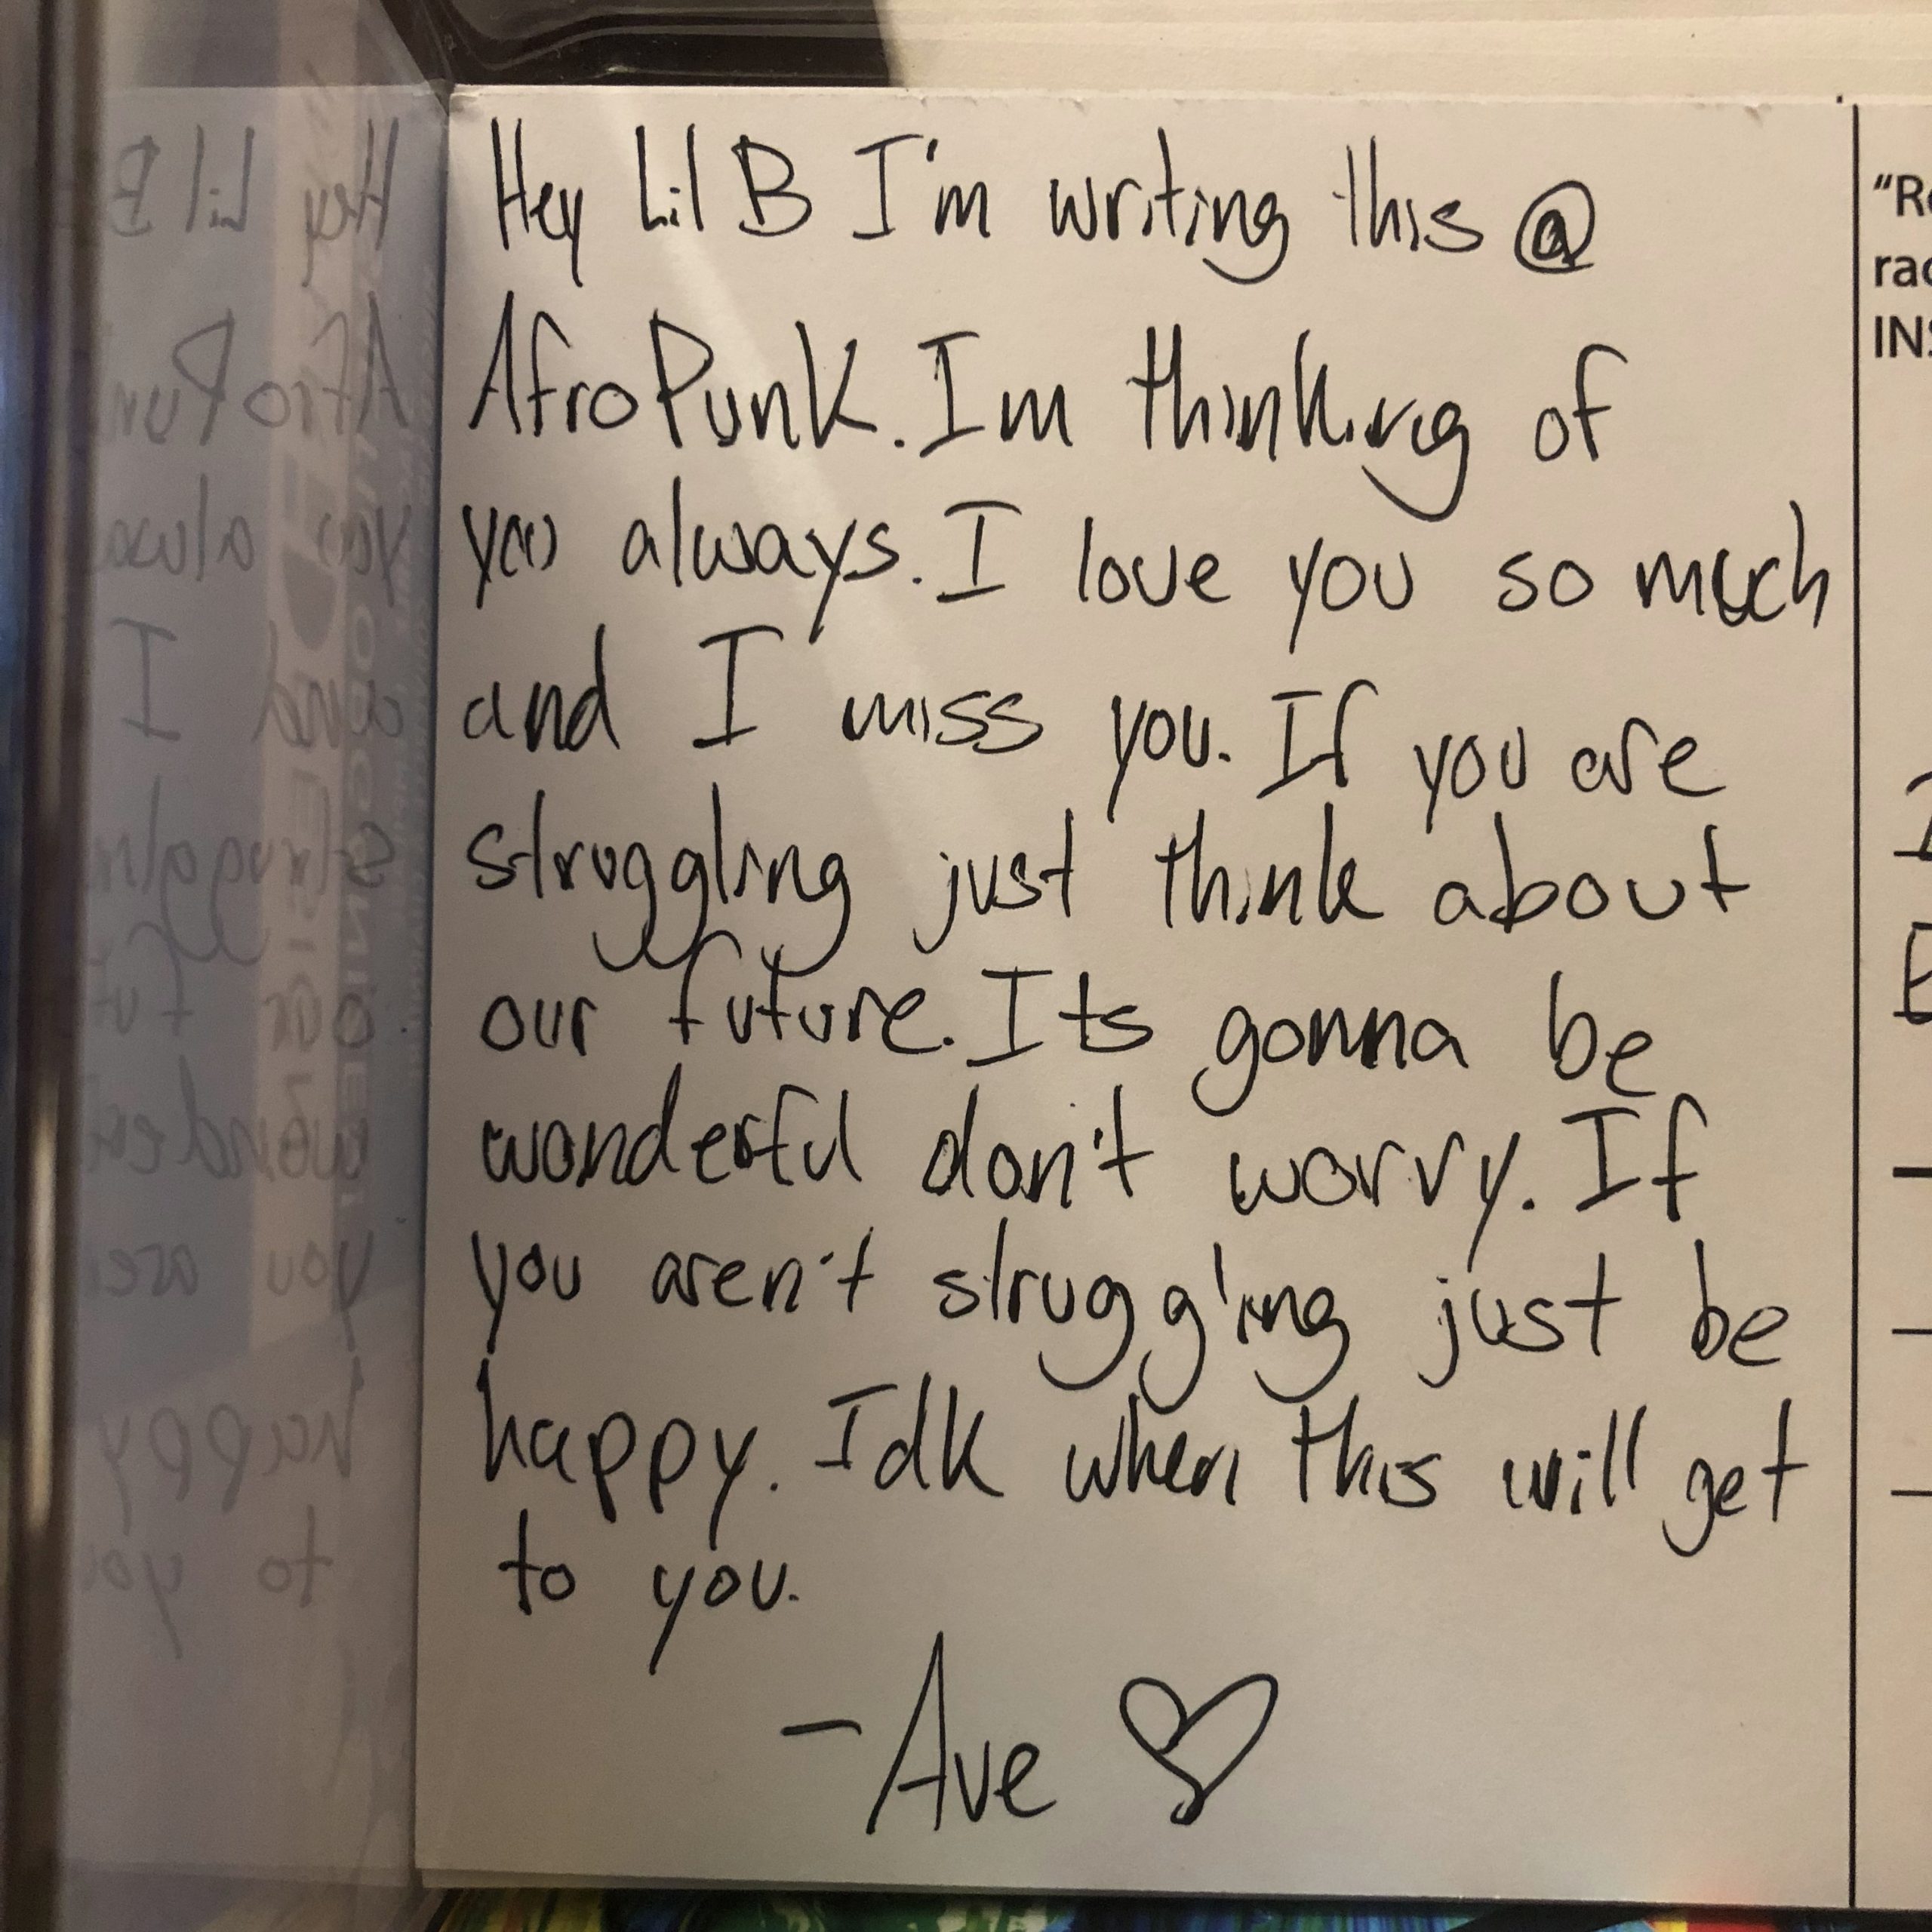 Hey Lil B I'm writing this @
AfroPunk. Im thinking of
you always. I love you so much
and I miss you. If you are
struggling just think about
our future. Its gonna be
wonderful don't worry. If
you aren't struggling just be
happy. Idk when this will get
to you.
-Ave ♡